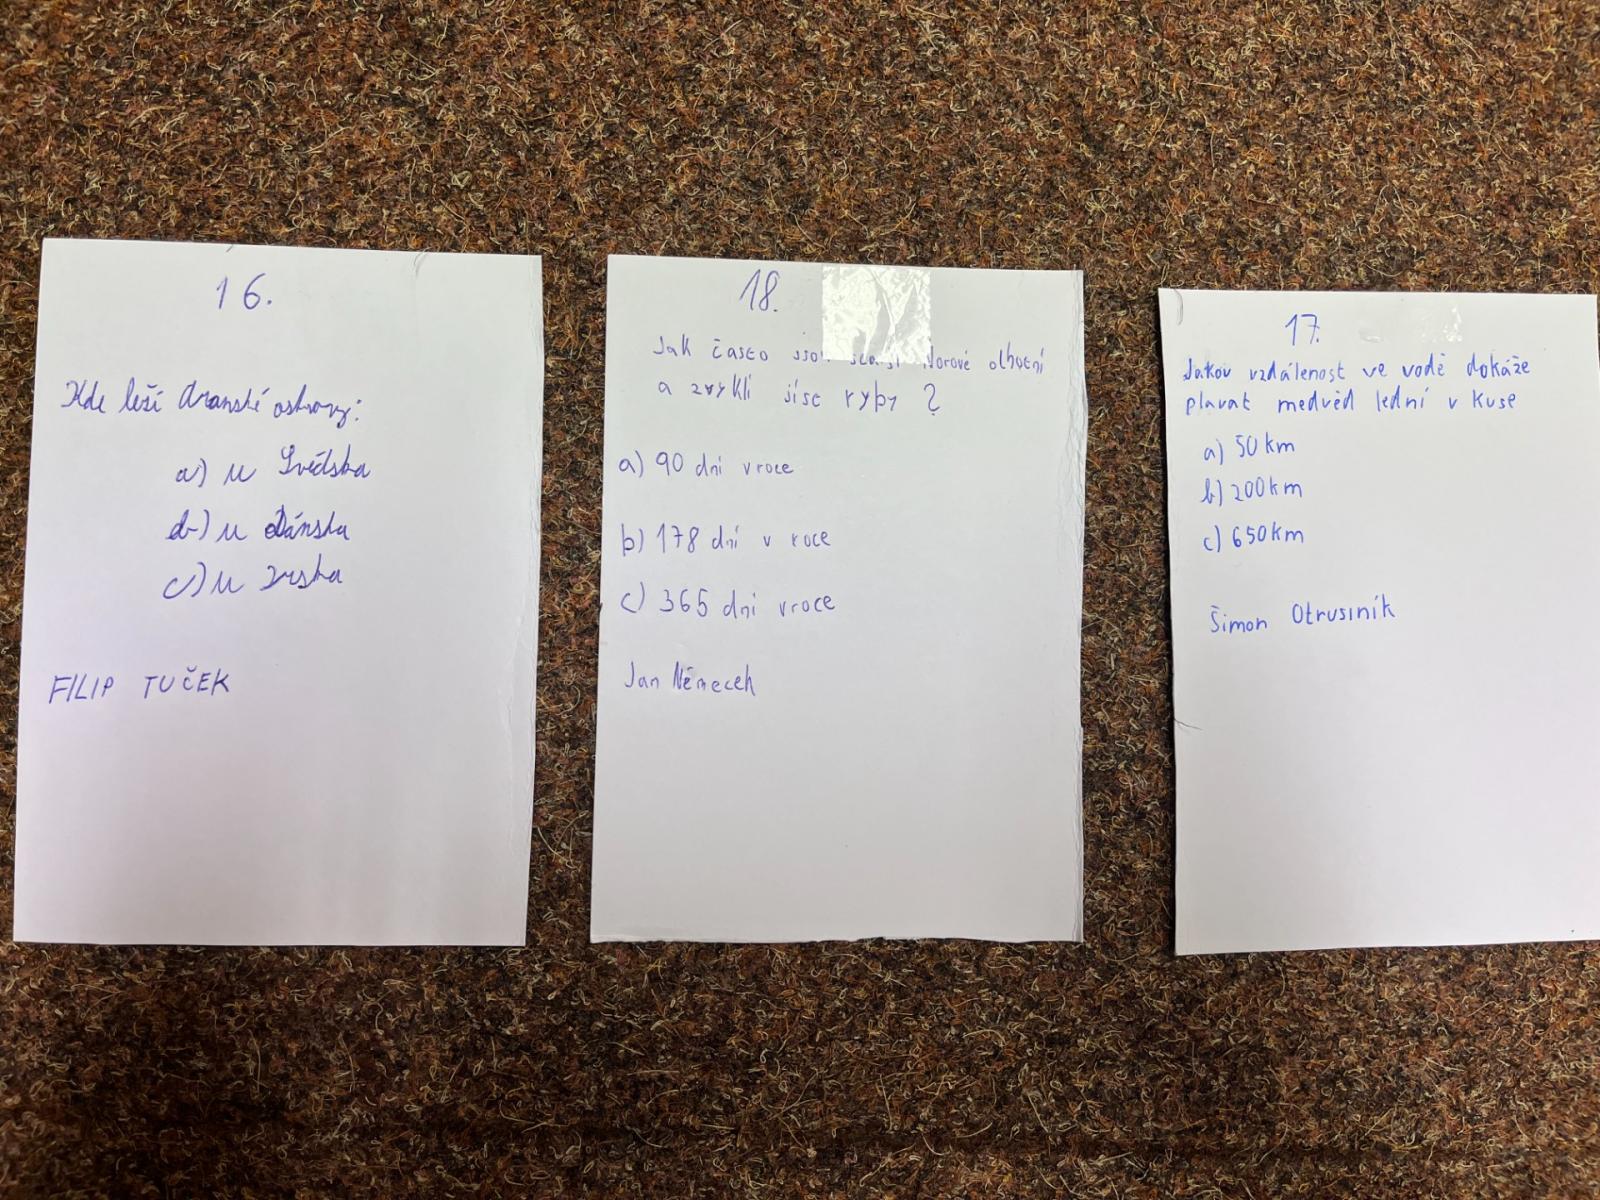 16.
Kde leží Aranské ostrovy:
a) u Švédska
b) u Dánska
c) u Irska
FILIP TUČEK
18.
Jak často jsou Norové ochotni
a zvyklí jíst ryby ?
a) 90 dní v roce
b) 178 dní v roce
c) 365 dní v roce
Jan Němeček
17.
Jakou vzdálenost ve vodě dokáže
plavat medvěd lední v kuse
a) 50 km
b) 200 km
c) 650 km
Šimon Otrusiník